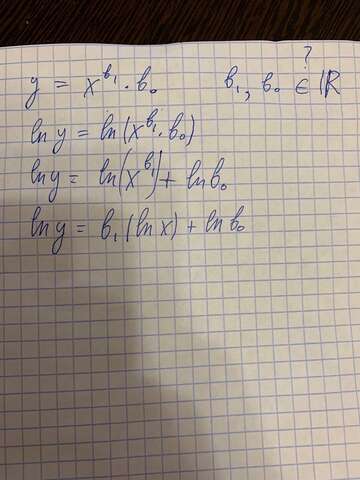 ?
y = x^{b₁} · b₀    b₁, b₀ ∈ ℝ
ln y = ln(x^{b₁} · b₀)
ln y = ln(x^{b₁}) + ln b₀
ln y = b₁ (ln x) + ln b₀